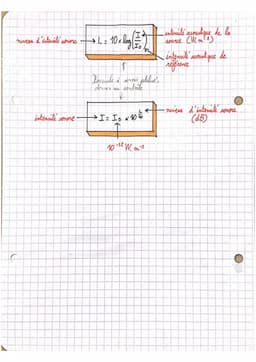 niveau d'intensité sonore → L = 10 × log(I/I₀) ← intensité acoustique de la
source (W.m⁻²)
intensité acoustique de
référence
Formule à savoir
intensité sonore → I = I₀ × 10^(L/10) ← niveau d'intensité sonore
(dB)
10⁻¹² W.m⁻²